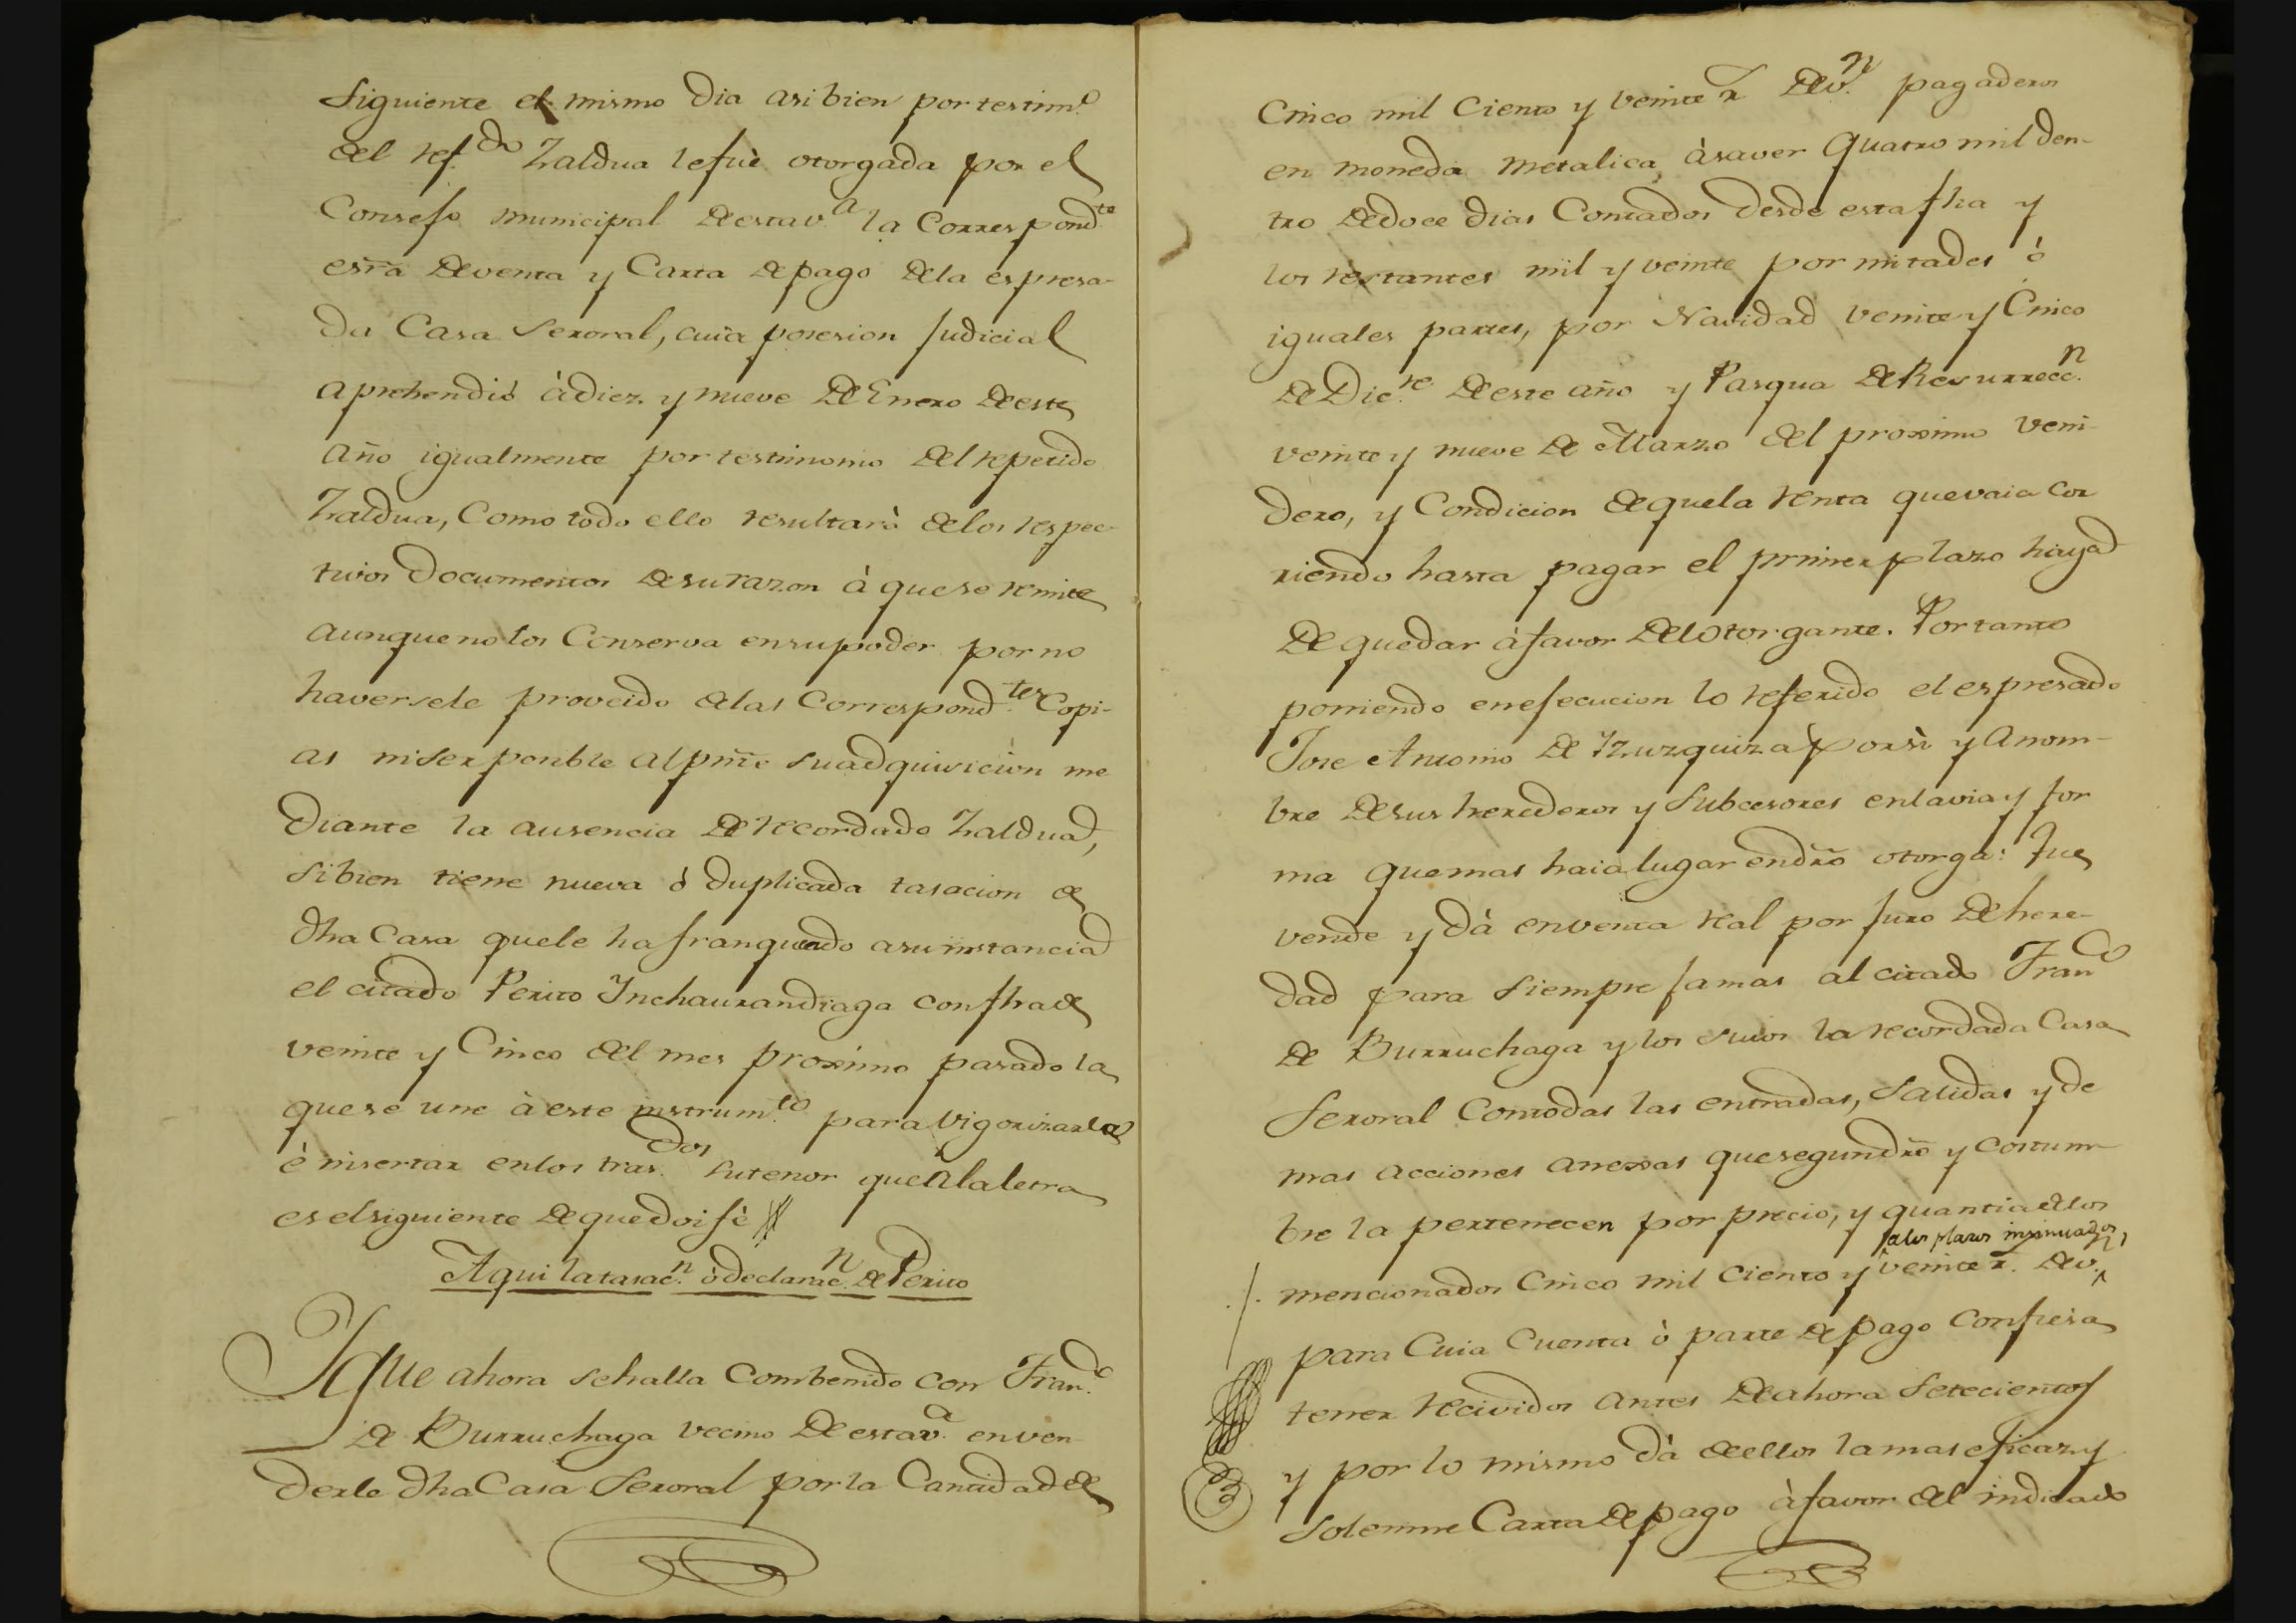 Siguiente el mismo dia asi bien por testim.º
del ref.do Zaldua le fuè otorgada por el
Consejo municipal de esta v.a la Correspond.te
esrã de venta y Carta de pago de la espresa-
da Casa Seroral, cuia posesion Judicial
aprehendió à diez y nueve de Enero de este
año igualmente por testimonio del repetido
Zaldua, Como todo ello resultarà de los respec-
tivos Documentos de su razon à que se remite
aunque no los Conserva en su poder por no
haversele proveido de las Correspond.tes Copi-
as ni ser posible al pnte su adquisicion me
diante la ausencia de recordado Zaldua,
si bien tiene nueva ò duplicada tasacion de
dha Casa que le ha franqueado a su instancia
el citado Perito Inchaurandiaga con fha de
veinte y Cinco del mes proximo pasado la
que se une à este instrum.to para vigorizarla
è insertar en los tras.dos su tenor que a la letra
es el siguiente de que doi fè
Aqui la tasac.n ò declarac.n de Perito
Y que ahora se halla Combenido con Fran.co
de Burruchaga vecino de esta v.a en ven
derle dha Casa Seroral por la Cantidad de
Cinco mil Ciento y veinte r.s de v.n pagaderos
en moneda metalica, à saver quatro mil den-
tro de doce dias Contados desde esta fha y
los restantes mil y veinte por mitades ò
iguales partes, por Navidad veinte y Cinco
de Dic.re de este año y Pasqua de Resurrecc.n
veinte y nueve de Marzo del proximo veni-
dero, y Condicion de que la renta que vaia cor
riendo hasta pagar el primer plazo haya
de quedar à favor del Otorgante. Por tanto
poniendo en ejecucion lo referido el espresado
Jose Antonio de Yzuzquiza por si y a nom-
bre de sus herederos y Subcesores en la via y for
ma que mas haia lugar en dro otorga: Que
vende y dà en venta real por juro de here-
dad para siempre jamas al citado Fran.co
de Burruchaga y los suios la recordada Casa
Seroral Con todas las entradas, Salidas y de
mas acciones anexas que segun dro y Costum-
bre la pertenecen por precio, y quantia de los
a los plazos insinuados,
mencionados Cinco mil Ciento y veinte r.s de v.n
para Cuia Cuenta ò parte de pago Confiesa
tener recividos antes de ahora Setecientos
y por lo mismo dà de ellos la mas eficaz y
Solemne Carta de pago à favor del indicado